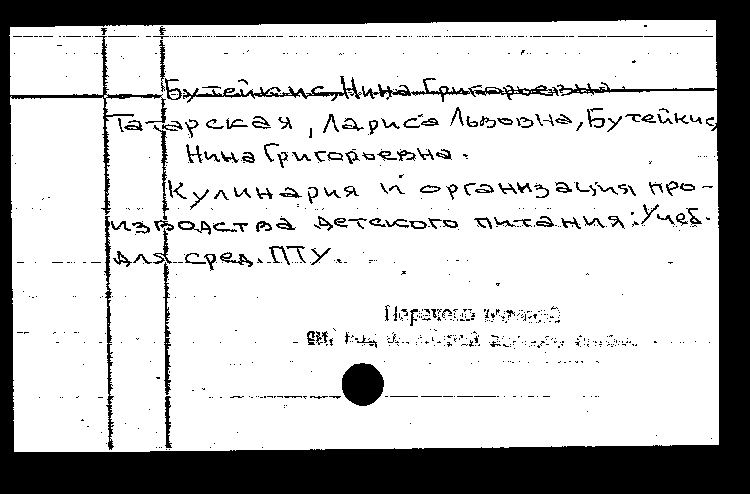 Бутейкис, Нина Григорьевна
Татарская, Лариса Львовна, Бутейкис,
Нина Григорьевна.
Кулинария и организация про-
изводства детского питания: Учеб.
для сред. ПТУ.